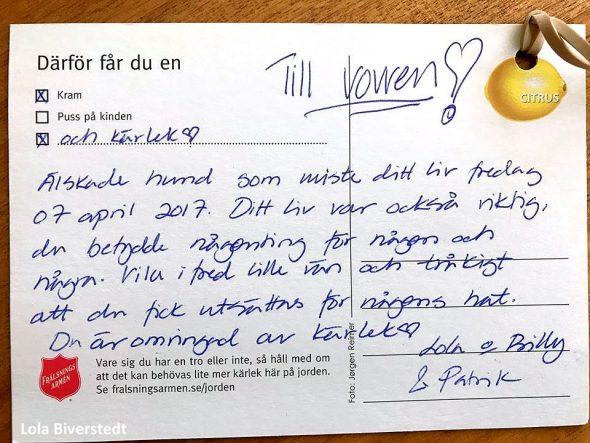 Därför får du en
Till vovven!
CITRUS
Kram
Puss på kinden
och kärlek
Älskade hund som miste ditt liv fredag
07 april 2017. Ditt liv var också viktig,
du betydde någonting för någon och
några. Vila i fred lille vän och tråkigt
att du fick utsättas för någons hat.
Du är omringad av kärlek
Lola o Billy
& Patrik
FRÄLSNINGS
ARMÉN
Vare sig du har en tro eller inte, så håll med om
att det kan behövas lite mer kärlek här på jorden.
Se fralsningsarmen.se/jorden
Foto: Jørgen Reimer
Lola Biverstedt